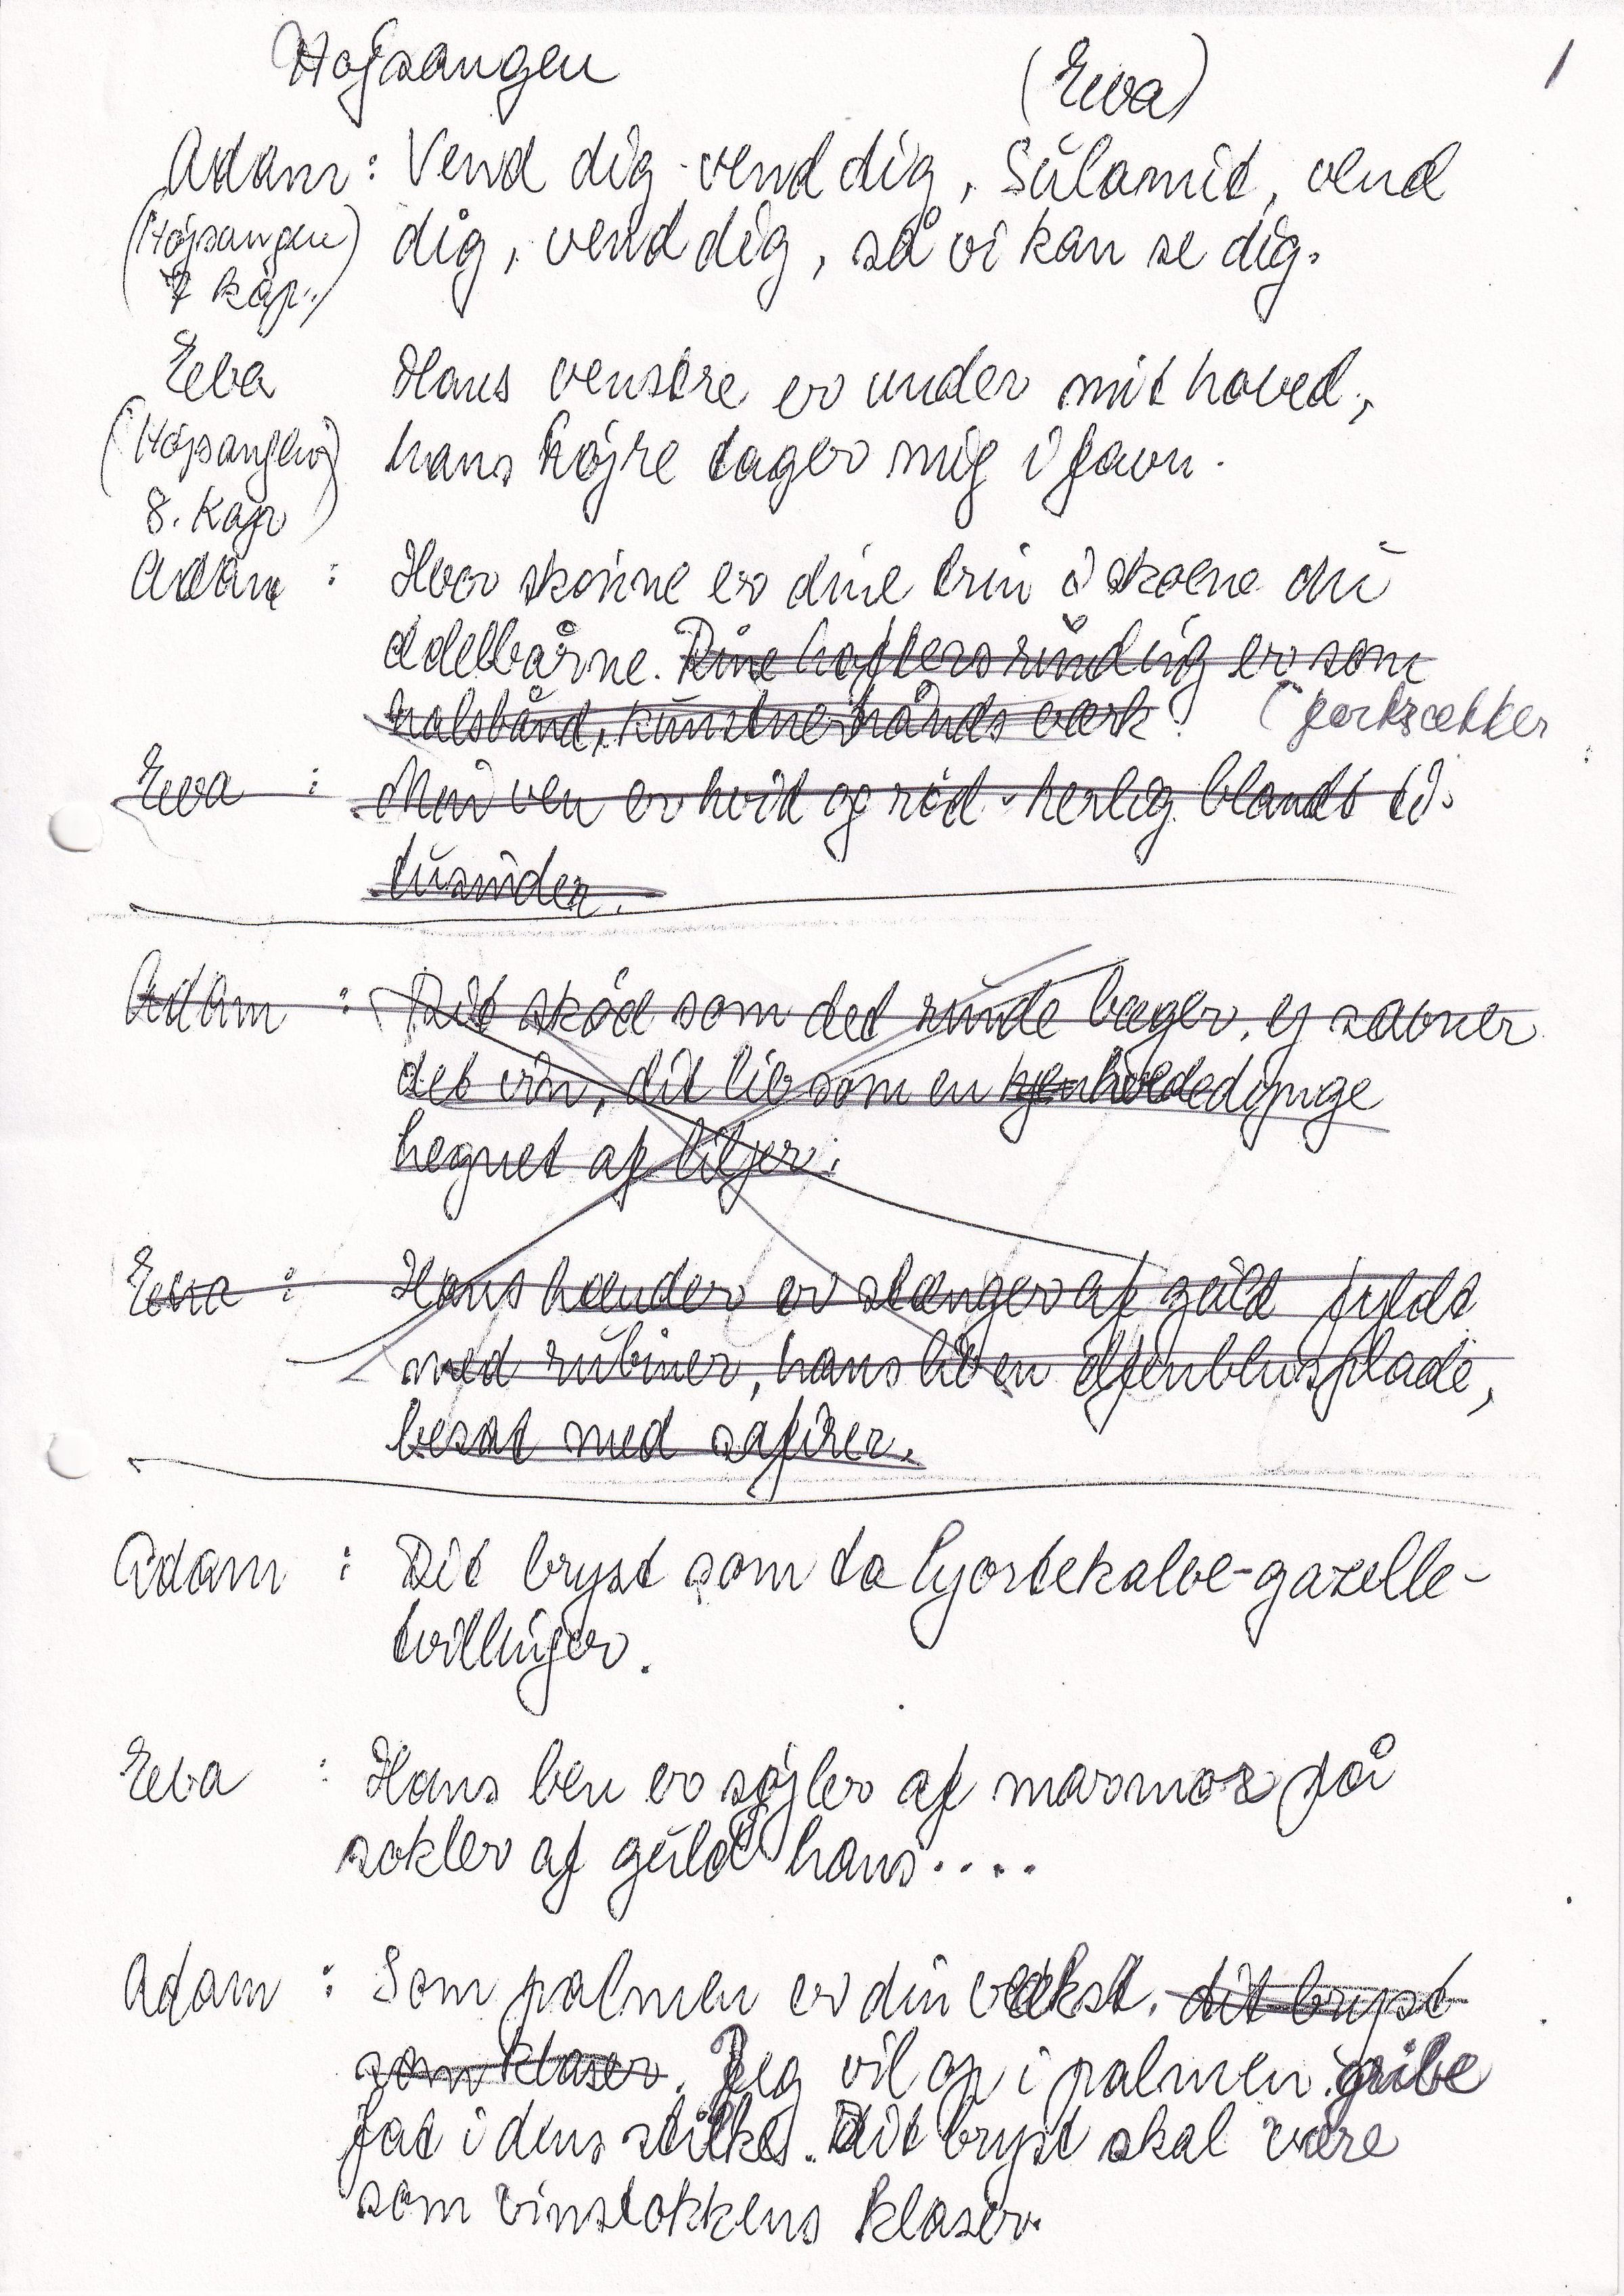 Højsangen
(Eva)
1
Adam : Vend dig - vend dig, Sulamit, vend
(Højsangen dig, vend dig, så vi kan se dig.
7 kap.)
Eva Hans venstre er under mit hoved,
(Højsangen hans højre tager mig i favn.
8. kap)
Adam : Hvor skønne er dine trin i skoene du
ædelbårne. Dine hofters runding er som
halsbånd, kunstnerhånds værk.
Eva : Min ven er hvid og rød - herlig blandt ti-
tusinder.
Adam : Dit skød som det runde bæger, ej savner
det vin, dit liv som en hvededynge
hegnet af liljer.
Eva : Hans hænder er stænger af guld fyldt
med rubiner, hans liv en elfenbensplade,
besat med safirer.
Adam : Dit bryst som to hjortekalve-gazelle-
tvillinger.
Eva : Hans ben er søjler af marmor på
sokler af guld hans....
Adam : Som palmen er din vækst. dit bryst
som klaser. Jeg vil op i palmen gribe
fat i dens stilke. Dit bryst skal være
som vinstokkens klaser.